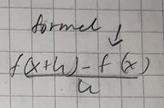 formel ↓
f(x+h) - f(x)
h